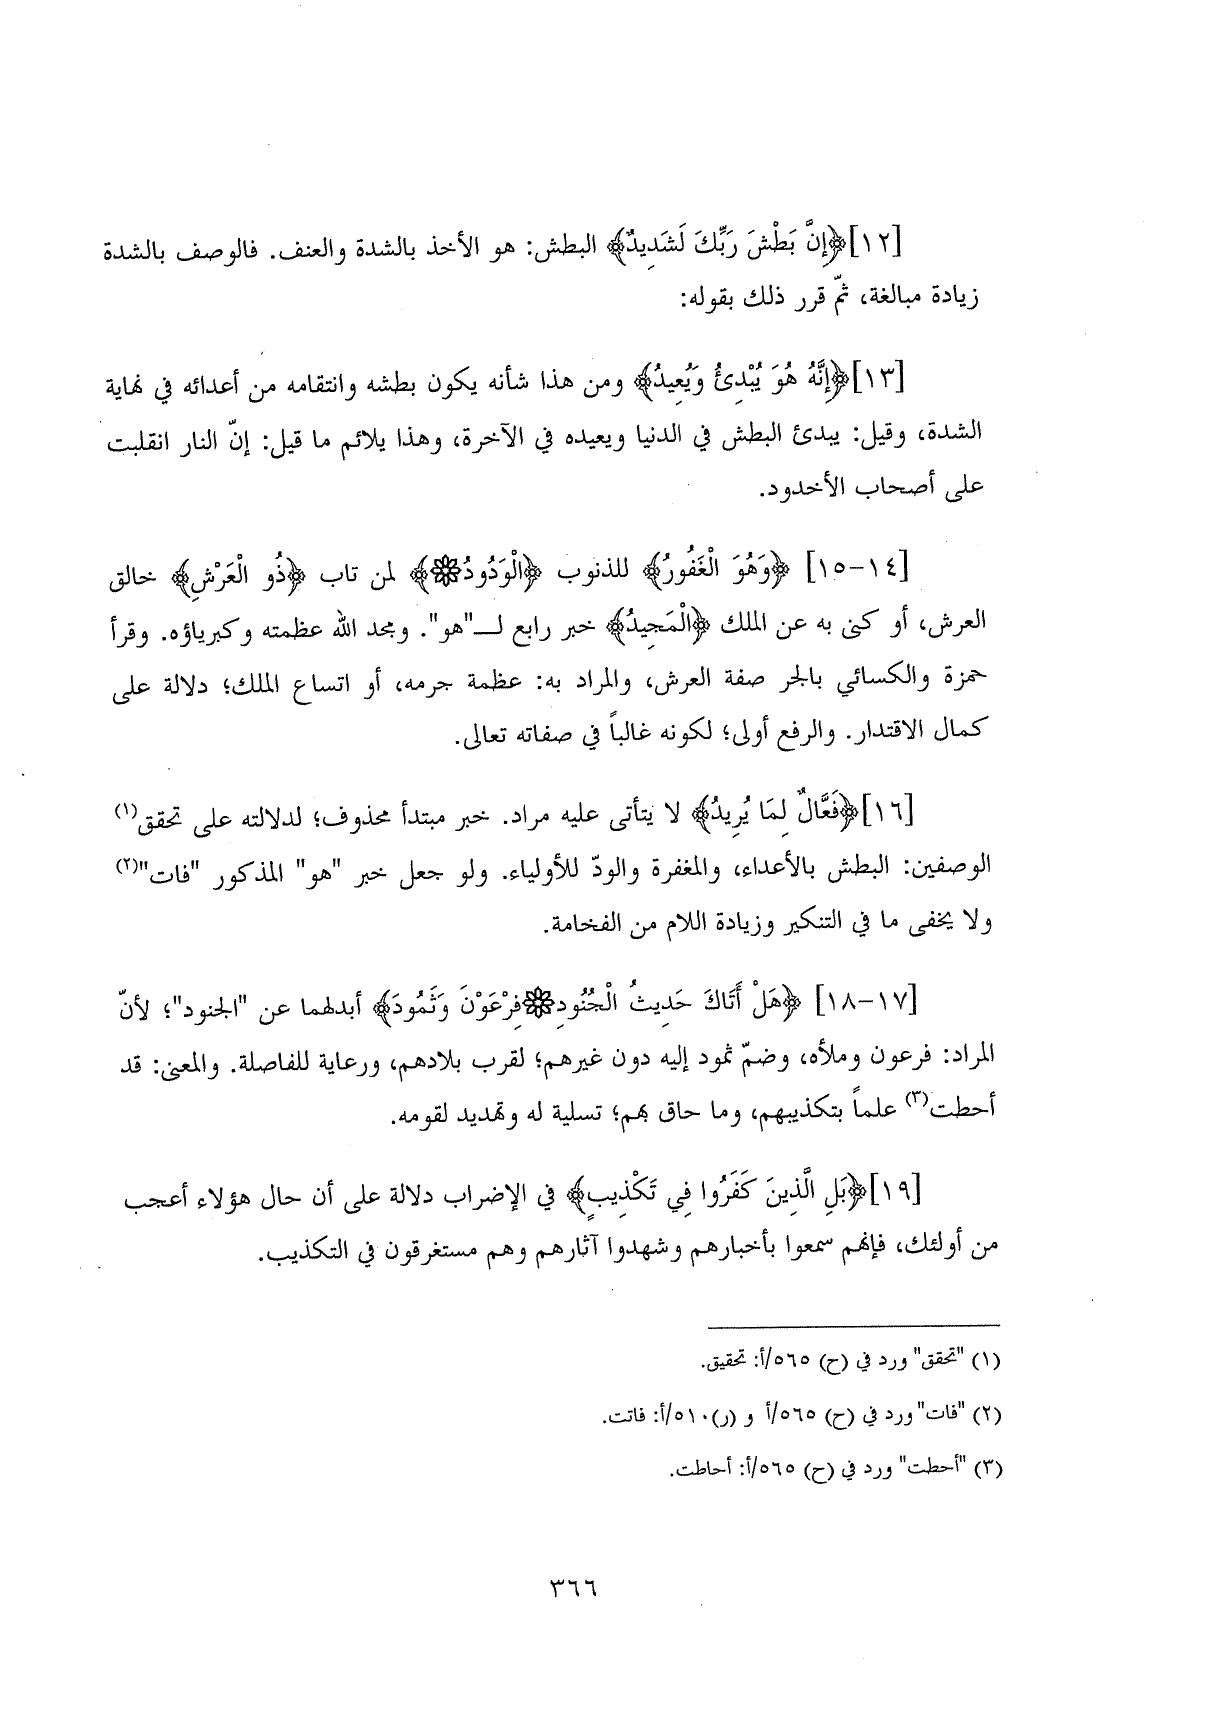 [١٢]﴿إِنَّ بَطْشَ رَبِّكَ لَشَدِيدٌ﴾ البطش: هو الأخذ بالشدة والعنف. فالوصف بالشدة
زيادة مبالغة، ثمّ قرر ذلك بقوله:
[١٣]﴿إِنَّهُ هُوَ يُبْدِئُ وَيُعِيدُ﴾ ومن هذا شأنه يكون بطشه وانتقامه من أعدائه في نهاية
الشدة، وقيل: يبدئ البطش في الدنيا ويعيده في الآخرة، وهذا يلائم ما قيل: إنّ النار انقلبت
على أصحاب الأخدود.
[١٤-١٥] ﴿وَهُوَ الْغَفُورُ﴾ للذنوب ﴿الْوَدُودُ۞﴾ لمن تاب ﴿ذُو الْعَرْشِ﴾ خالق
العرش، أو كنى به عن الملك ﴿الْمَجِيدُ﴾ خبر رابع لـــ"هو". ومجد الله عظمته وكبرياؤه. وقرأ
حمزة والكسائي بالجر صفة العرش، والمراد به: عظمة جرمه، أو اتساع الملك؛ دلالة على
كمال الاقتدار. والرفع أولى؛ لكونه غالباً في صفاته تعالى.
[١٦]﴿فَعَّالٌ لِمَا يُرِيدُ﴾ لا يتأتى عليه مراد. خبر مبتدأ محذوف؛ لدلالته على تحقق(١)
الوصفين: البطش بالأعداء، والمغفرة والودّ للأولياء. ولو جعل خبر "هو" المذكور "فات"(٢)
ولا يخفى ما في التنكير وزيادة اللام من الفخامة.
[١٧-١٨] ﴿هَلْ أَتَاكَ حَدِيثُ الْجُنُودِ۞فِرْعَوْنَ وَثَمُودَ﴾ أبدلهما عن "الجنود"؛ لأنّ
المراد: فرعون وملأه، وضمّ ثمود إليه دون غيرهم؛ لقرب بلادهم، ورعاية للفاصلة. والمعنى: قد
أحطت(٣) علماً بتكذيبهم، وما حاق بهم؛ تسلية له وتهديد لقومه.
[١٩]﴿بَلِ الَّذِينَ كَفَرُوا فِي تَكْذِيبٍ﴾ في الإضراب دلالة على أن حال هؤلاء أعجب
من أولئك، فإنهم سمعوا بأخبارهم وشهدوا آثارهم وهم مستغرقون في التكذيب.
(١) "تحقق" ورد في (ح) ٥٦٥/أ: تحقيق.
(٢) "فات" ورد في (ح) ٥٦٥/أ و (ر)٥١٠/أ: فاتت.
(٣) "أحطت" ورد في (ح) ٥٦٥/أ: أحاطت.
٣٦٦